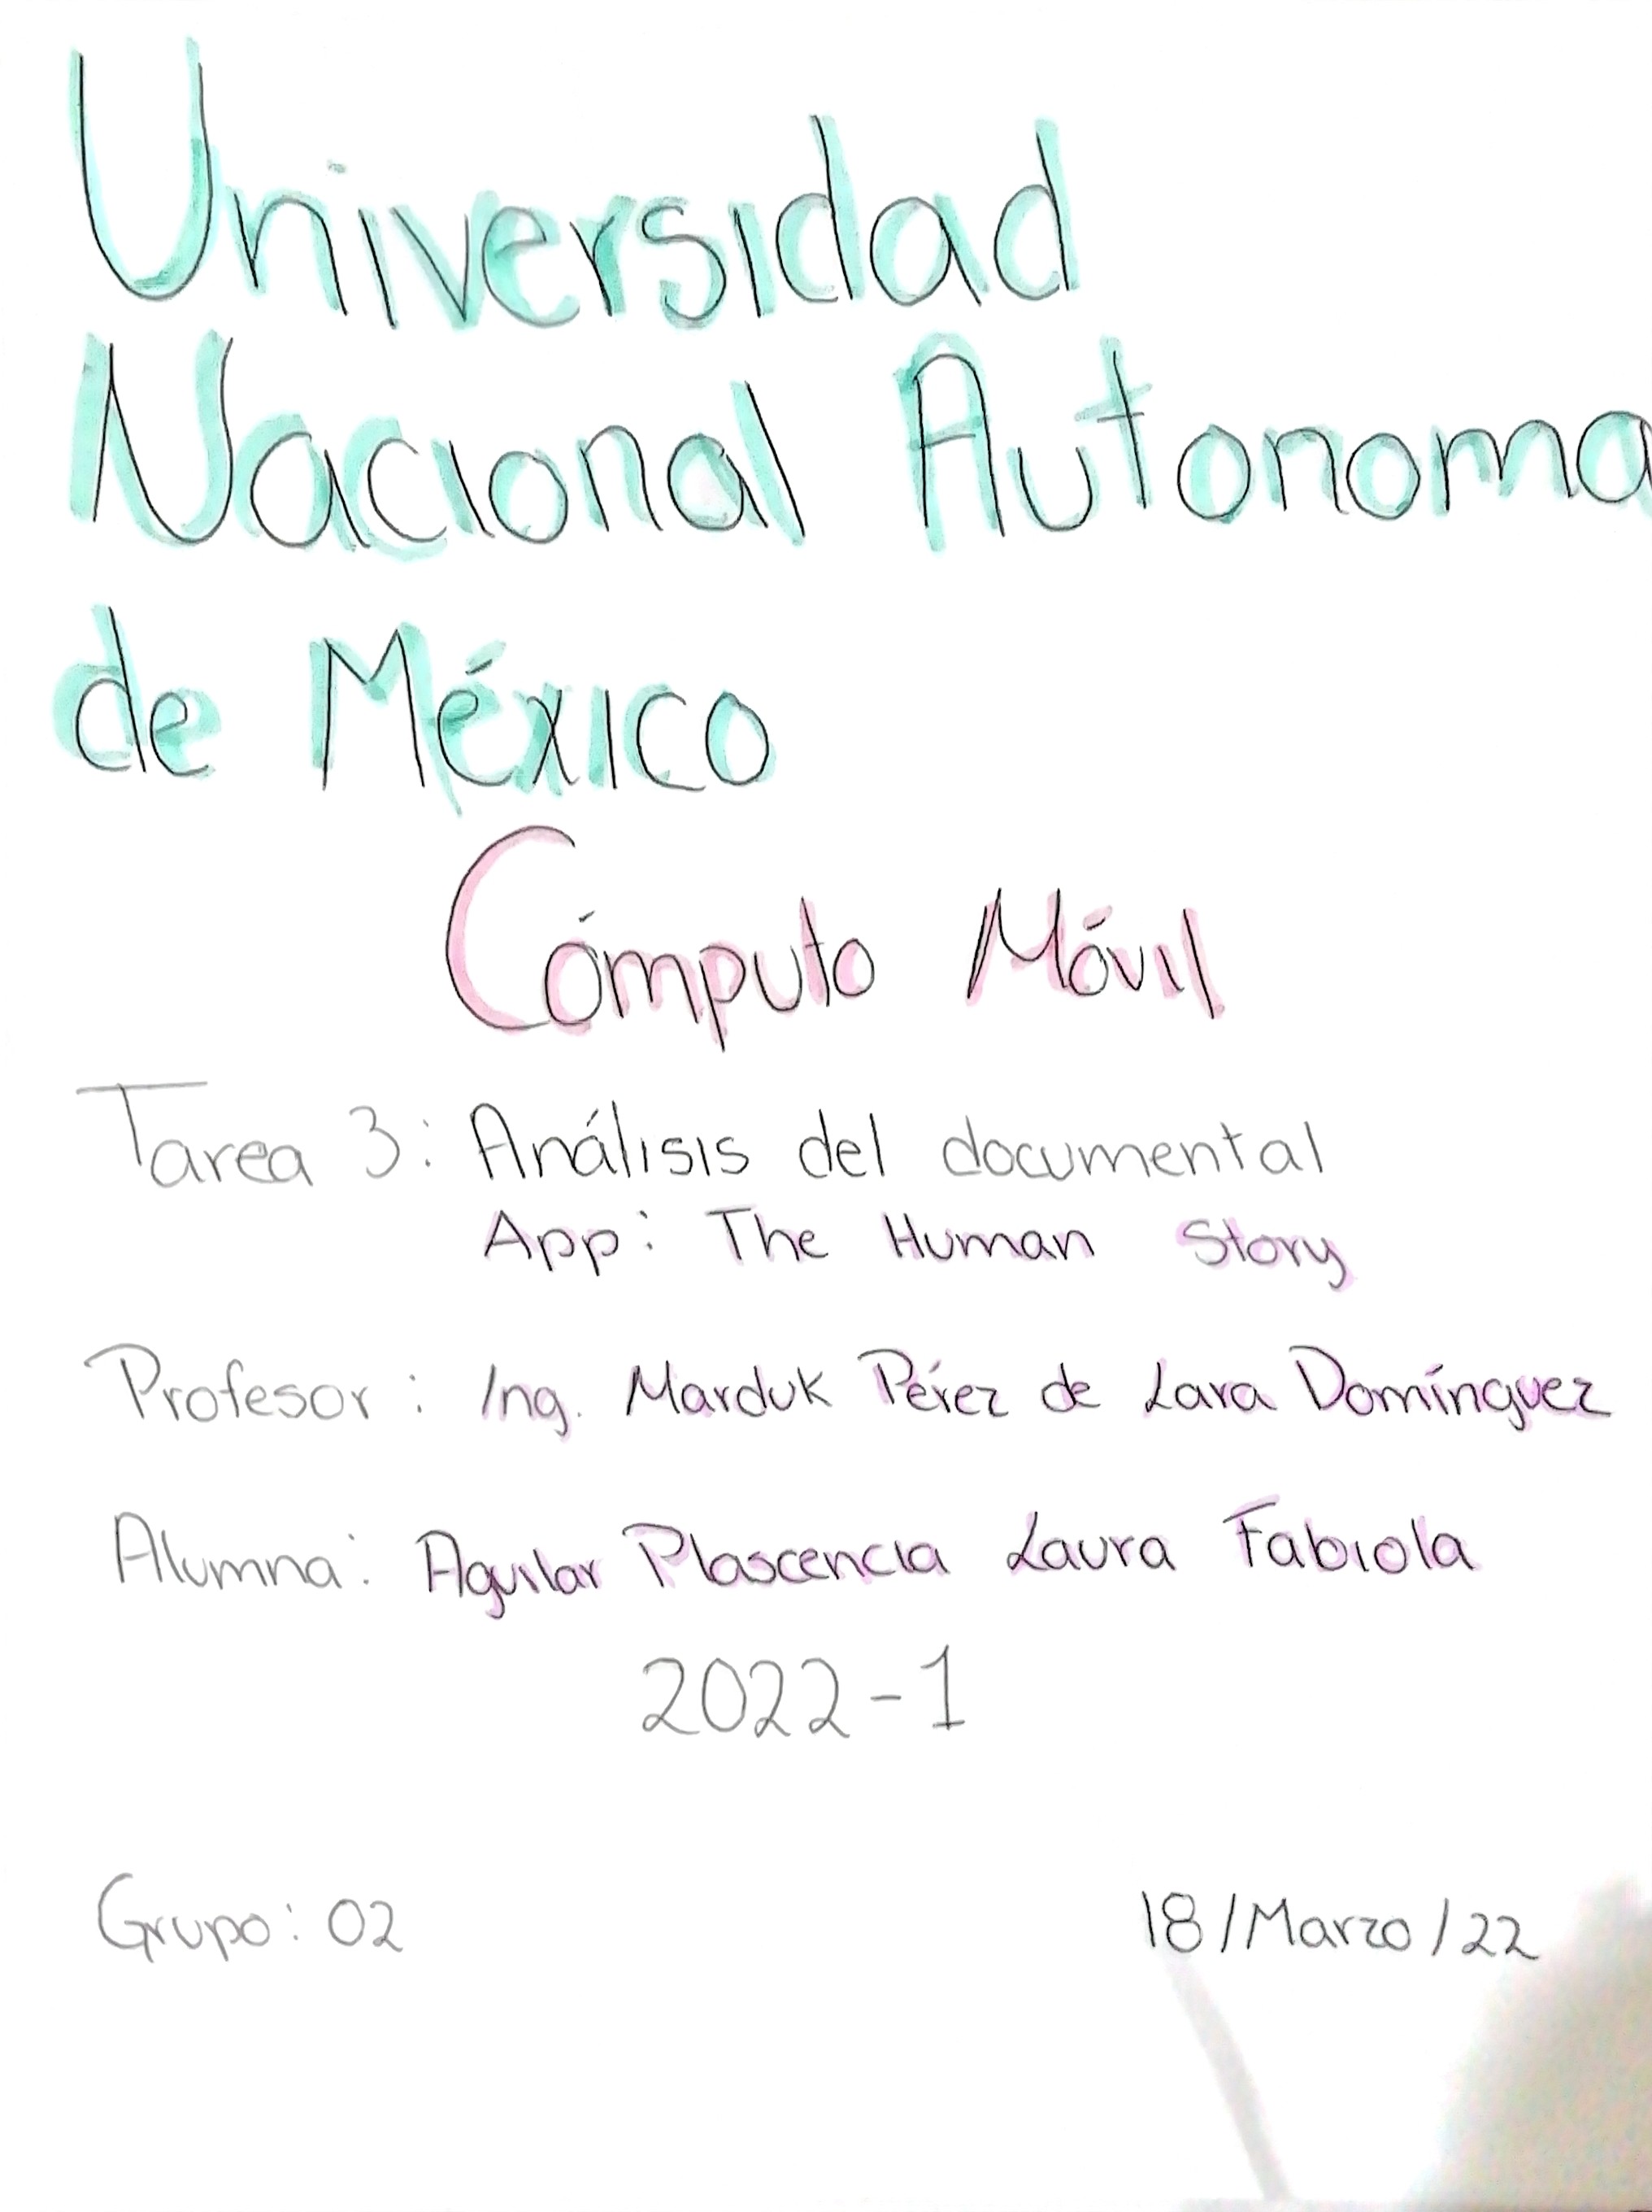 Universidad
Nacional Autonoma
de México
Cómputo Móvil
Tarea 3: Análisis del documental
App: The Human Story
Profesor: Ing. Marduk Pérez de Lara Domínguez
Alumna: Aguilar Plascencia Laura Fabiola
2022-1
Grupo: 02 18/Marzo/22